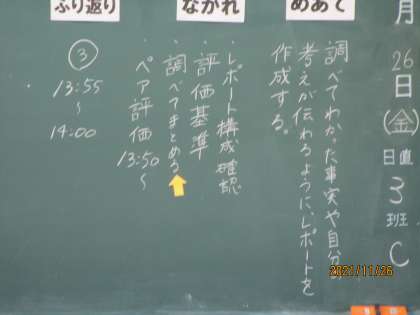 月
26
日
(金)
日直
3
班
C
めあて
調べてわかった事実や自分の
考えが伝わるように、レポートを
作成する。
ながれ
・レポート構成確認
・評価基準
・調べてまとめる
・ペア評価 13:50〜
ふり返り
③
13:55
〜
14:00
2021/11/26